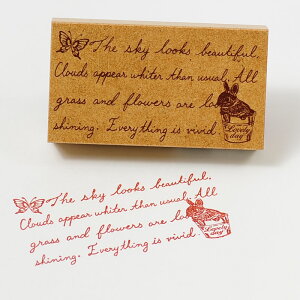 The sky looks beautiful.
Clouds appear whiter than usual. All
grass and flowers are
shining. Everything is vivid.
Lovely
day
The sky looks beautiful.
Clouds appear whiter than usual. All
grass and flowers are
shining. Everything is vivid.
Lovely
day